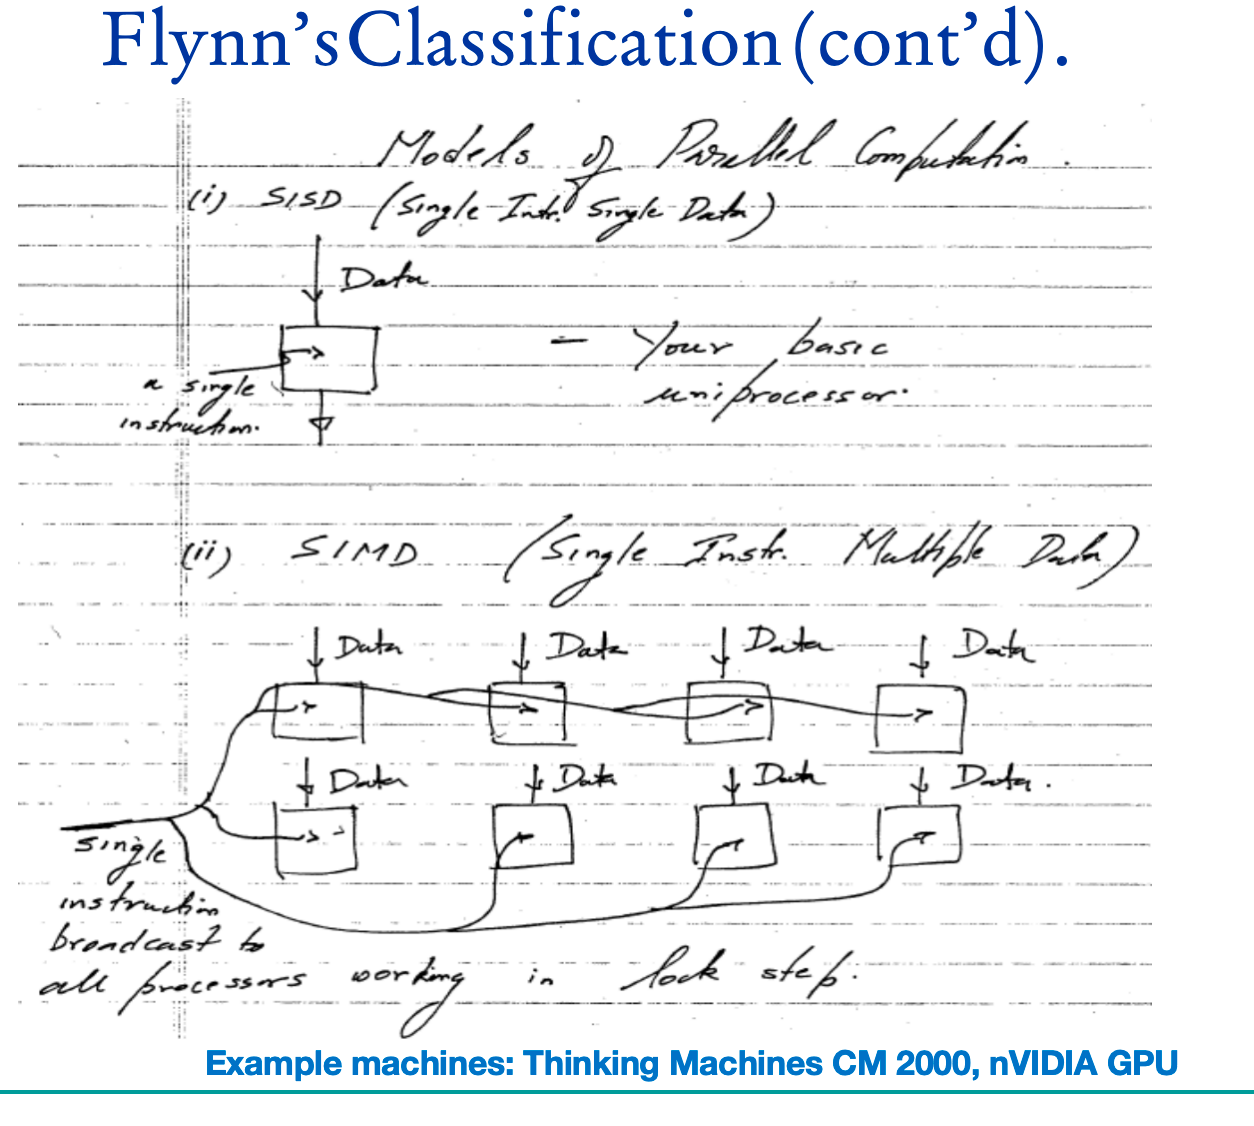 Flynn's Classification (cont'd).
Models of Parallel Computation.
(i) SISD (Single Instr. Single Data)
Data
- Your basic
uniprocessor.
a single
instruction.
(ii) SIMD (Single Instr. Multiple Data)
Data Data Data Data
Data Data Data Data.
single
instruction
broadcast to
all processors working in lock step.
Example machines: Thinking Machines CM 2000, nVIDIA GPU